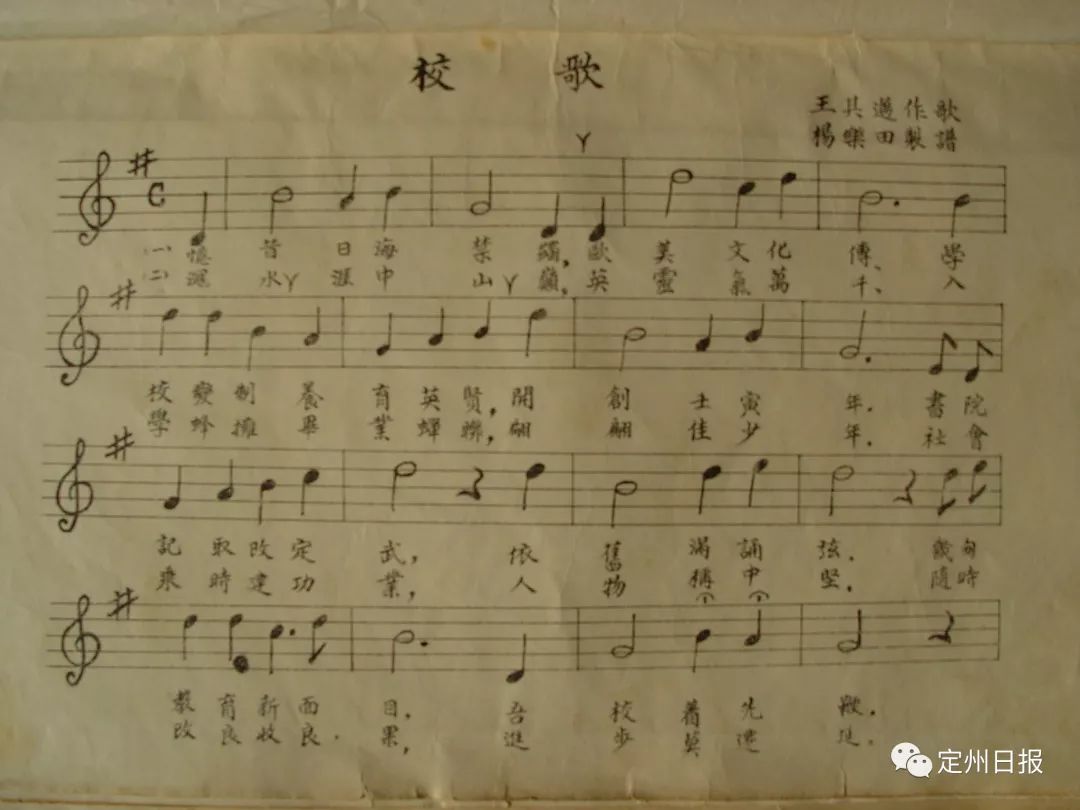 校 歌
王其邁作歌
楊樂田製譜
(一)憶昔日海禁蠲,歐美文化傳、學
(二)滱水涯中山巔,英靈氣萬千、入
校變制養育英賢,開創壬寅年.書院
學蜂擁畢業蟬聯,翩翩佳少年.社會
記取改定武,依舊滿誦弦.幾旬
乘時建功業,人物稱中堅.隨時
教育新面目,吾校著先鞭.
改良收良果,進步莫遷延.
定州日报